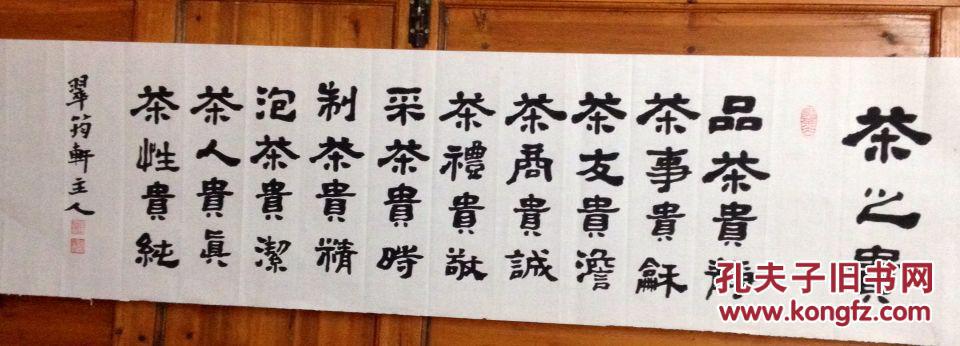 茶之貴
品茶貴
茶事貴龢
茶友貴澹
茶商貴誠
茶禮貴敬
采茶貴時
制茶貴精
泡茶貴潔
茶人貴真
茶性貴純
翠筠軒主人
孔夫子旧书网
www.kongfz.com